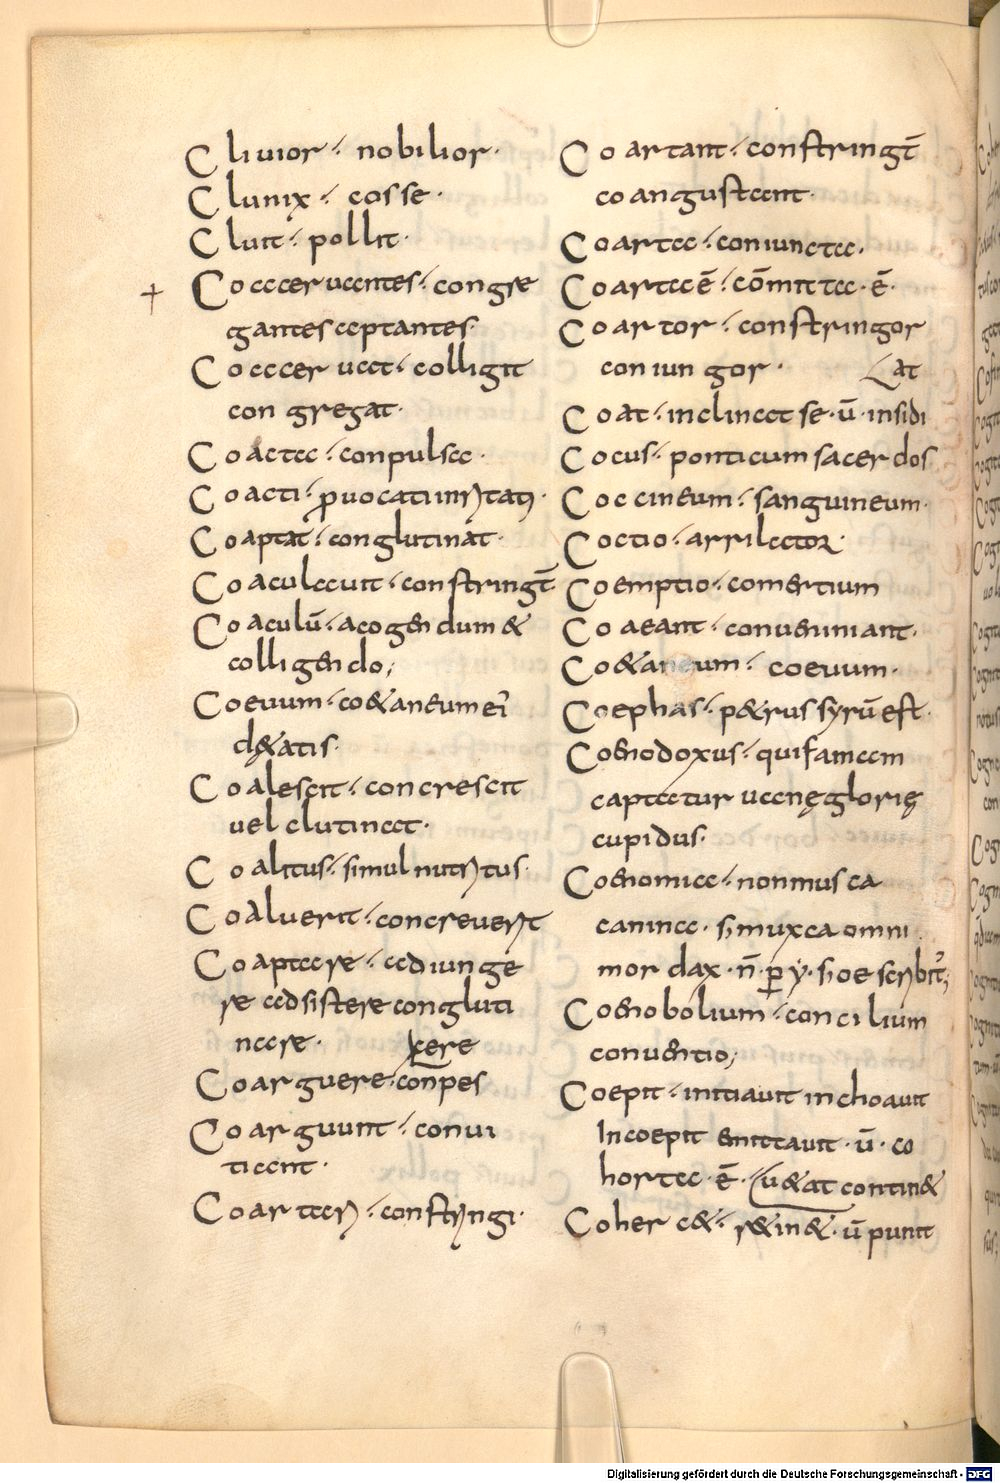 Cliuior · nobilior ·
Clunix · cosse ·
Cluit · pollit ·
Coaceruantes · congre
gantes aptantes ·
Coaceruat · colligit
congregat ·
Coacta · conpulsa ·
Coacti · ꝓuocati inritatꝰ ·
Coaptat · conglutinat ·
Coaculauit · constringt̄
Coaculū · acogendum &
colligendo ;
Coeuum · co&aneum ei
d&atis ·
Coalescit · concrescit
uel clutinat ·
Coalitus · simul nutritus ·
Coaluerit · concreuerit
Coaptare · adiunge
re adsistere congluti
nare ·
Coarguere · con̄pes
xere
Coarguunt · conui
tiant ·
Coartari · constringi ·
Coartant · constringt̄
coangustant ·
Coarta · coniuncta ·
Coarta ē · com̄itta · ē ·
Coartor · constringor
coniungor ·
Lat
Coat · inclinat se · ū · insidi
Cocus · ponticum sacerdos
Coccineum · sanguineum ·
Coctio · arrilector ·
Coemptio · comertium
Coaeant · conueniniant ·
Co&aneum · coeuum ·
Coephas · p&rus syrū est ·
Coenodoxus · qui famam
captatur uanę glorię
cupidus ·
Coenomica · non musca
canina · s; muxca omni
mordax · n̄ · ꝑ y · s; oe scribit᷑ ;
Coenobolium · concilium
conuentio ;
Coepit · initiauit inchoauit
Incoepit enitauit · ū · co
horta · ē ·
u&at contin&
Coherc& · r&in& · ū punit
Digitalisierung gefördert durch die Deutsche Forschungsgemeinschaft - DFG